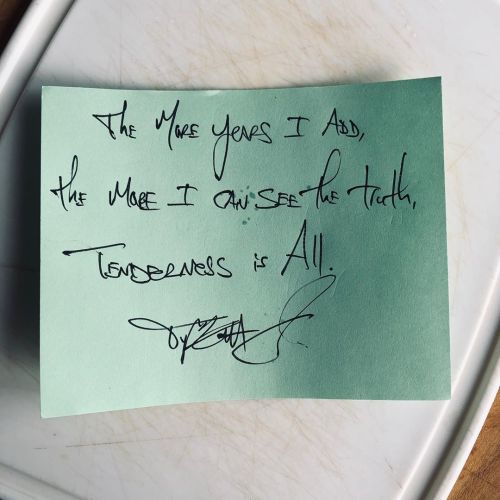 The More Years I Add,
the More I can see the truth,
Tenderness is All.